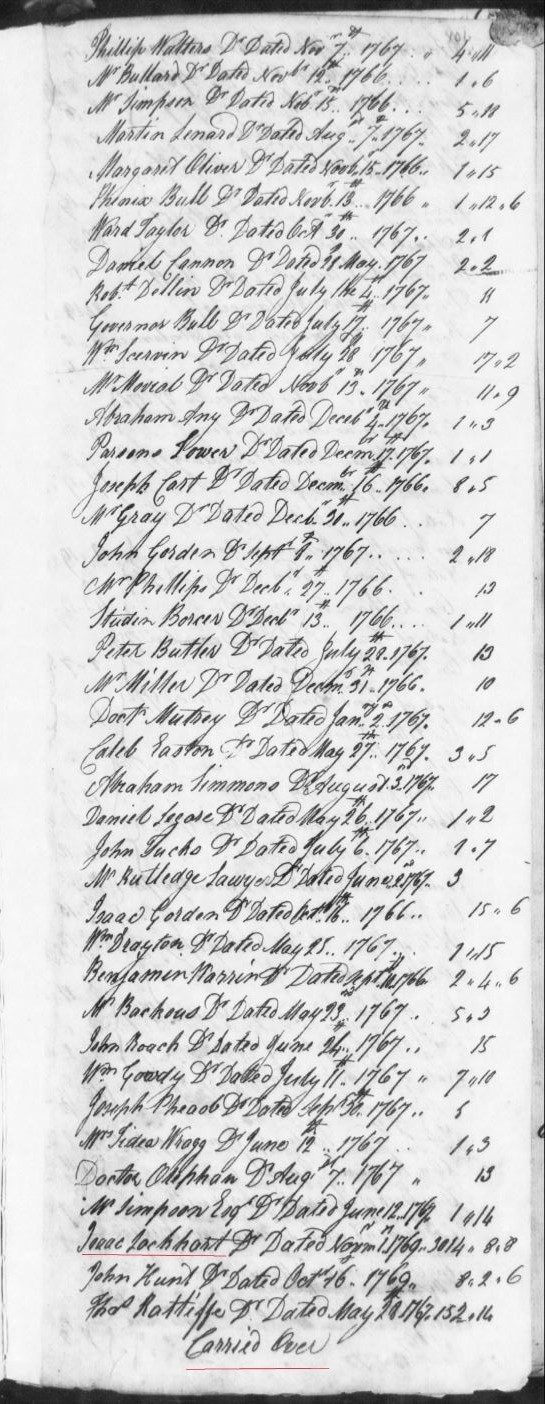 Phillip Walters Dr Dated Novr 7th 1767 .. 4 .. 11
Mr Bullard Dr Dated Novbr 12th 1766 .... 1 .. 6
Mr Simpson Dr Dated 15th 1766 ... 5 .. 18
Martin Lenard Dr Dated Augt 7th 1767 2 .. 17
Margaret Oliver Dr Dated Novb 15 1766 .. 1 .. 15
Bull Dr Dated Novbr 13th 1766 " 1 .. 12 .. 6
Ward Taylor Dr Dated Octr 30th 1767 .. 2 .. 1
Daniel Cannon Dr Dated 28 May 1767 2 .. 2
Robt Dellin Dr Dated July the 4th 1767 .. 8
Governor Bull Dr Dated July 17th 1767 " 7
Wm Dr Dated July 28th 1767 " 17 .. 2
Mr Dr Dated Novbr 13th 1767 " 11 .. 9
Abraham Any Dr Dated Decebr 4th 1767. 1 .. 3
Parsons Dr Dated Decmbr 17th 1767. 1 .. 1
Joseph Cart Dr Dated Decmbr 16th 1766. 8 .. 5
Mr Gray Dr Dated Decbr 30th 1766 ... 7
John Gorden Dr Septr 8th 1767 ..... 2 .. 18
Mr Phillips Dr Decbr 27th 1766 ... 13
Borcer Dr Decbr 13th 1766 .... 1 .. 11
Peter Butler Dr Dated July 28th 1767. 13
Mr Miller Dr Dated Decmbr 31st 1766. 10
Doctr Dr Dated Jany 2nd 1767. 12 .. 6
Caleb Easton Dr Dated May 27th 1767. 3 .. 5
Abraham Simmons Dr August 3rd 1767. 17
Daniel Legare Dr Dated May 26th 1767 .. 1 .. 2
John Tucks Dr Dated July 6th 1767 .. 1 .. 7
Mr Rutledge Lawyer Dr Dated June 2nd 1767. 3
Isaac Gorden Dr Dated Octr 16th 1766 .. 15 .. 6
Wm Drayton Dr Dated May 25 .. 1767 ... 1 .. 15
Benjamin Dr Dated Septr 11th 1766 2 .. 4 .. 6
Mr Backous Dr Dated May 23rd 1767 .. 5 .. 3
John Roach Dr Dated June 24th 1767 .. 15
Wm Gowdy Dr Dated July 11th 1767 " 7 .. 10
Joseph Dr Dated Septr 30th 1767 .. 5
Mrs Wragg Dr June 12th 1767 .. 1 .. 3
Doctor Oliphan Dr Augt 7th 1767 " 13
Mr Simpson Esqr Dr Dated June 12 .. 1767 1 .. 14
Isaac Lockhart Dr Dated 1769 .. 3014 .. 8 .. 8
John Hunt Dr Dated Octr 16th 1769 .. 8 .. 2 .. 6
Thos Ratliffe Dr Dated May 28th 1767. 152 .. 14
Carried Over